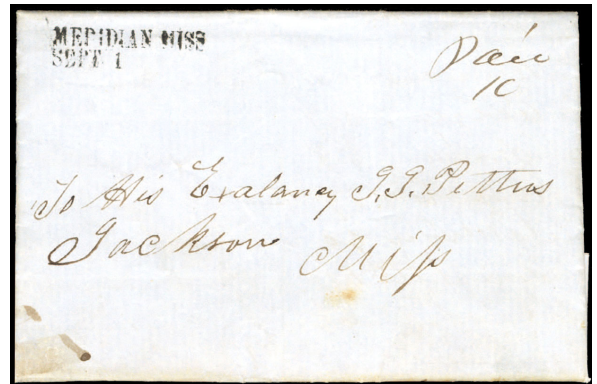 MERIDIAN MISS
SEPT 1
Paid
10
To His Exalancy J.J. Pettus
Jackson
Miss